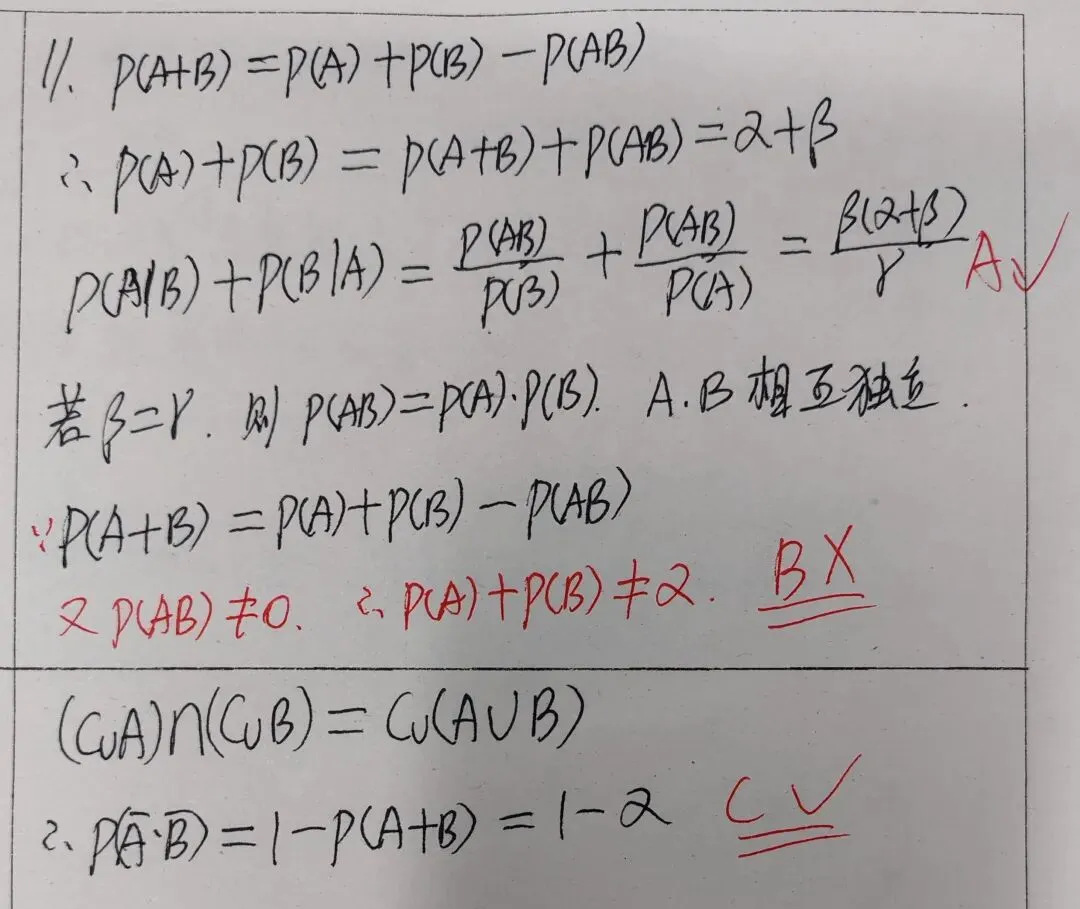 11. P(A+B)=P(A)+P(B)-P(AB)
∴ P(A)+P(B)=P(A+B)+P(AB)=α+β
P(A|B)+P(B|A)=\frac{P(AB)}{P(B)}+\frac{P(AB)}{P(A)}=\frac{β(α+β)}{γ} A✓
若β=γ. 则 P(AB)=P(A)·P(B). A.B相互独立.
∵P(A+B)=P(A)+P(B)-P(AB)
又P(AB)≠0. ∴P(A)+P(B)≠α. B X
(C_UA)∩(C_UB)=C_U(A∪B)
∴ P(\bar{A}·\bar{B})=1-P(A+B)=1-α C ✓